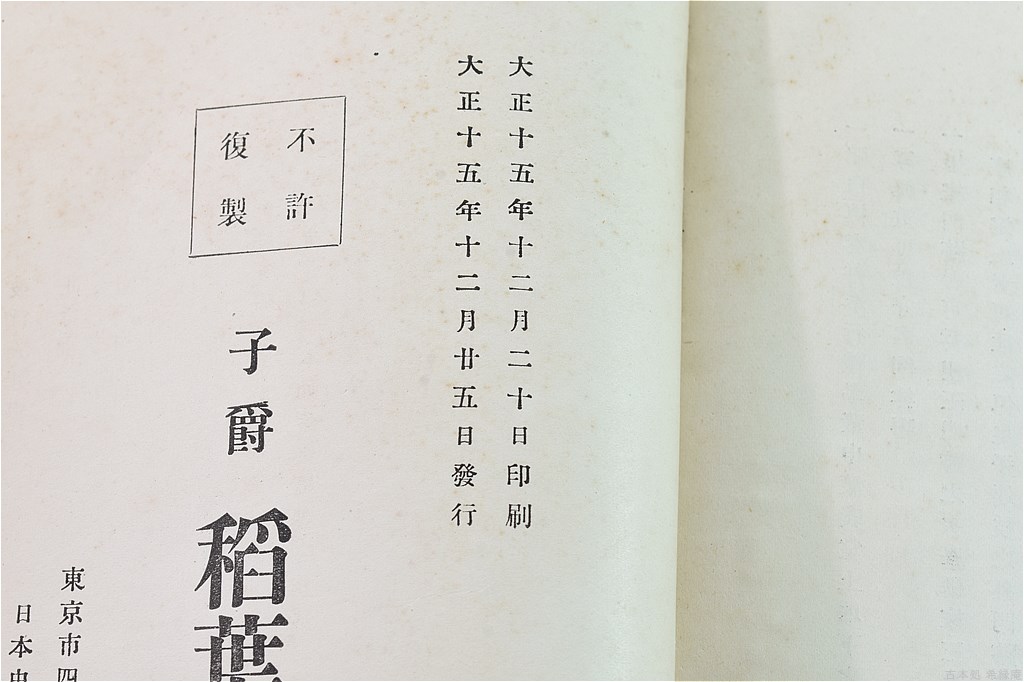 大正十五年十二月二十日印刷
大正十五年十二月廿五日發行
不許
復製
子爵 稻葉
東京市四
日本